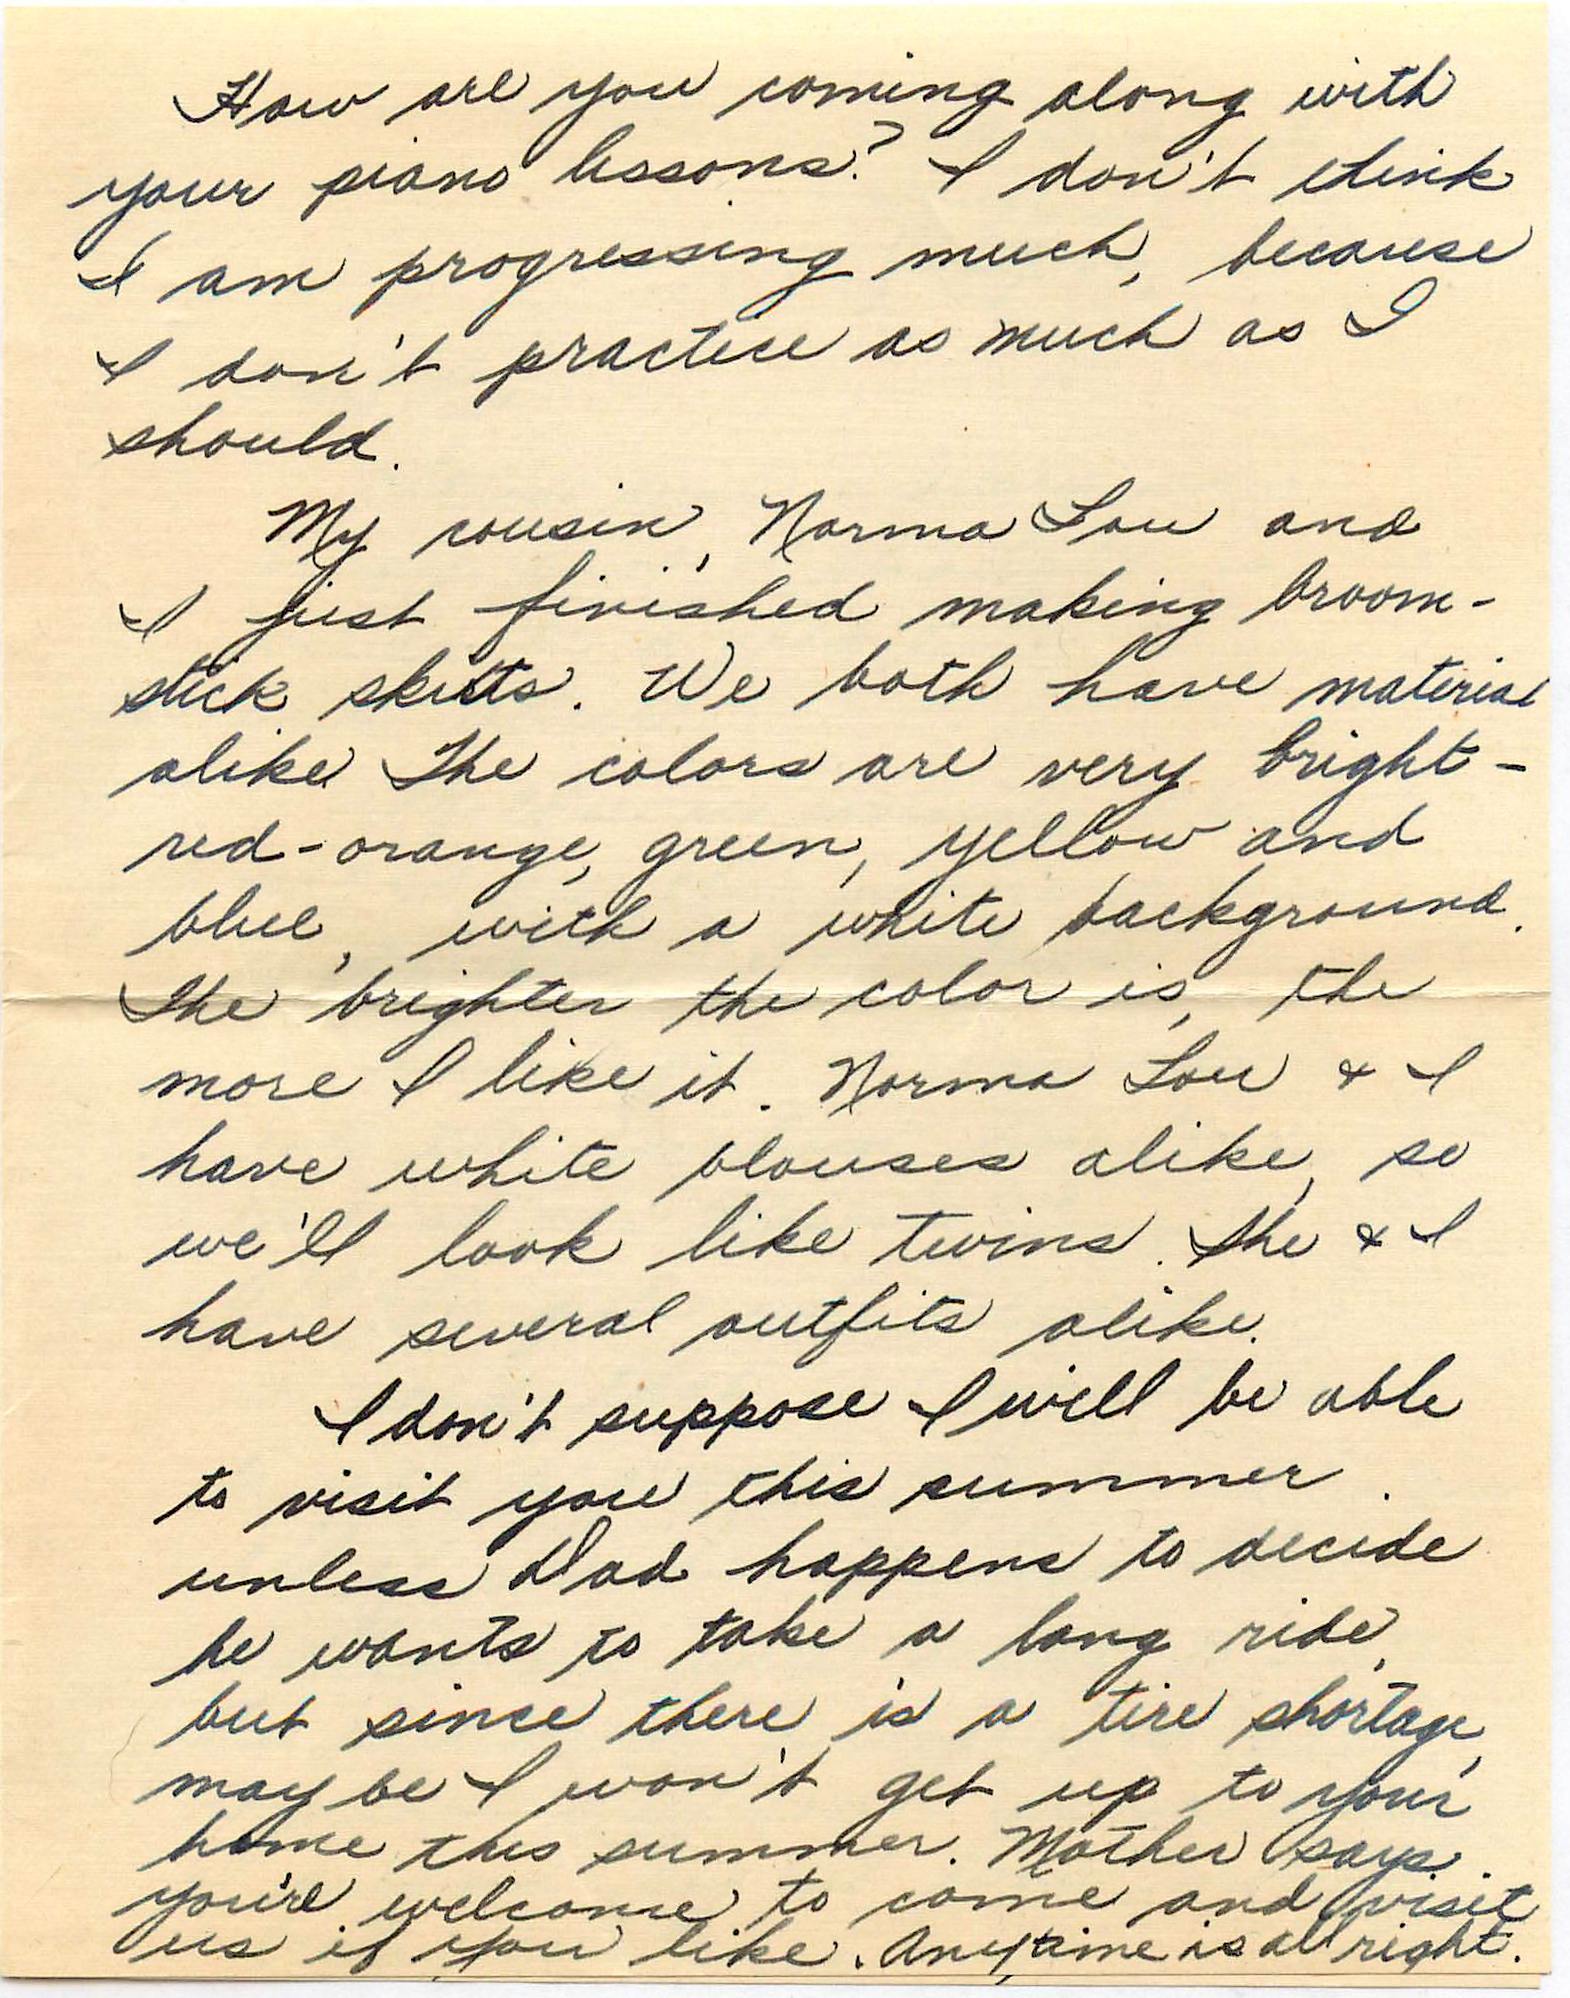 How are you coming along with
your piano lessons? I don't think
I am progressing much, because
I don't practice as much as I
should.
My cousin, Norma Lou and
I just finished making broom-
stick skirts. We both have material
alike The colors are very bright -
red-orange, green, yellow and
blue, with a white background.
The brighter the color is, the
more I like it. Norma Lou & I
have white blouses alike, so
we'll look like twins. She & I
have several outfits alike.
I don't suppose I will be able
to visit you this summer.
unless Dad happens to decide
he wants to take a long ride,
but since there is a tire shortage,
maybe I won't get up to your
home this summer. Mother says
you're welcome to come and visit
us if you like. Anytime is all right.